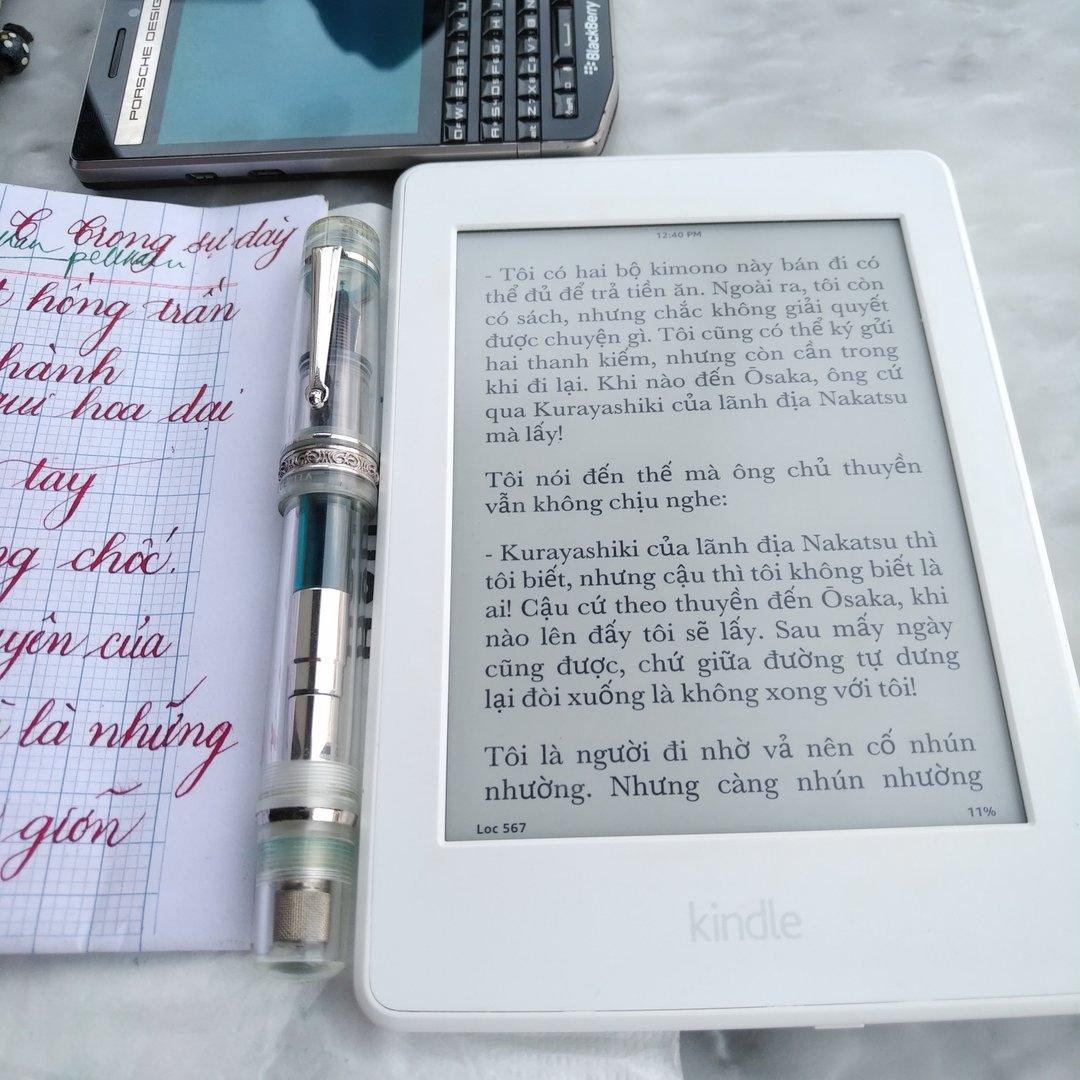 PORSCHE DESIGN
BlackBerry
trong sự dày
pelikan
hồng trần
hành
hoa dại
tay
chốc.
của
là những
giỡn
12:40 PM
- Tôi có hai bộ kimono này bán đi có
thể đủ để trả tiền ăn. Ngoài ra, tôi còn
có sách, nhưng chắc không giải quyết
được chuyện gì. Tôi cũng có thể ký gửi
hai thanh kiếm, nhưng còn cần trong
khi đi lại. Khi nào đến Ōsaka, ông cứ
qua Kurayashiki của lãnh địa Nakatsu
mà lấy!
Tôi nói đến thế mà ông chủ thuyền
vẫn không chịu nghe:
- Kurayashiki của lãnh địa Nakatsu thì
tôi biết, nhưng cậu thì tôi không biết là
ai! Cậu cứ theo thuyền đến Ōsaka, khi
nào lên đấy tôi sẽ lấy. Sau mấy ngày
cũng được, chứ giữa đường tự dưng
lại đòi xuống là không xong với tôi!
Tôi là người đi nhờ vả nên cố nhún
nhường. Nhưng càng nhún nhường
Loc 567
11%
kindle